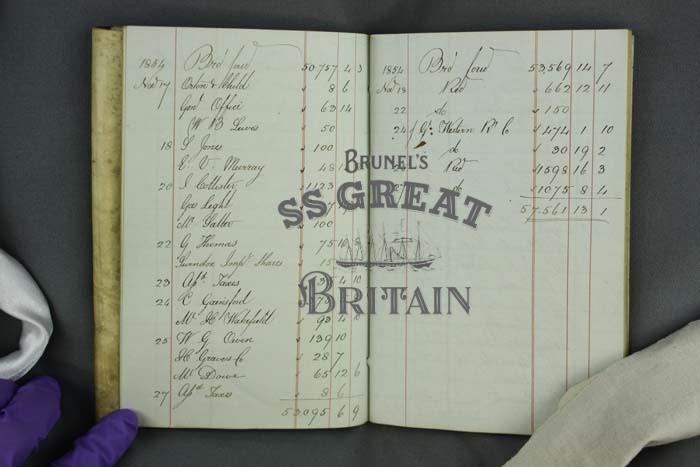 1854 Bro' ford 50,757 4 3
Nov 17 Orton & Child 8 6
Genl Office 63 14
W B Lewis 50
18 L Jones 100
E. V. Murray 48
20 J Collister 1123
Gas Light
Mr Salter 100
22 G Thomas 75
Swindon Impt Shares 15
23 Apst Taxes 10
24 C Gainsford
Mr H Wakefield 93 4 10
25 W G Owen 139 10
H Graves Co 28 7
Mr Dowe 65 12 6
27 Apst Taxes 8 6
53,095 6 9
1854 Bro' ford 53,569 14 7
Nov 18 Rec 662 12 11
22 do 150
24 Gt Western Ry Co 1474 1 10
do 30 19 2
Rec 1598 16 3
do 1075 8 4
57,561 13 1
BRUNEL'S
SS GREAT
BRITAIN